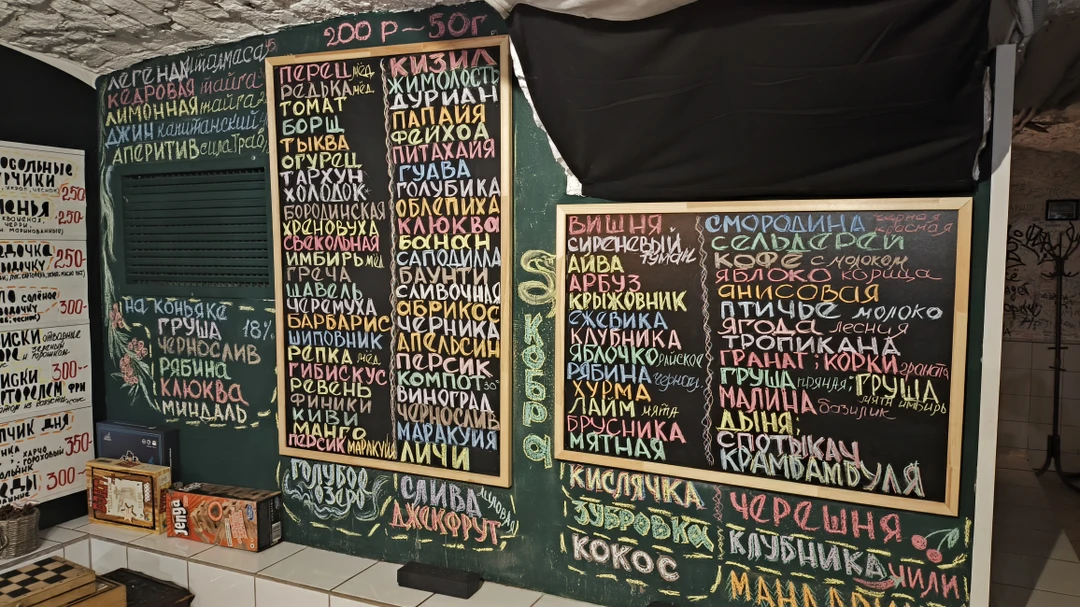 200 Р - 50г.
ЛЕГЕНДА
КЕДРОВАЯ тайга
ЛИМОННАЯ тайга
ДЖИН капитанский
АПЕРИТИВ сила трав
На КОНЬЯКЕ
ГРУША 18%
ЧЕРНОСЛИВ
РЯБИНА
КЛЮКВА
МИНДАЛЬ
250
-250-
250-
300-
300-
300-
350-
300-
ГОРОХОВЫЙ
ДНЯ
Jenga
ПЕРЕЦ мёд.
РЕДЬКА мёд.
ТОМАТ
БОРЩ
ТЫКВА
ОГУРЕЦ
ТАРХУН
ХОЛОДОК
БОРОДИНСКАЯ
ХРЕНОВУХА
СВЕКОЛЬНАЯ
ИМБИРЬ мёд
ГРЕЧА
ЩАВЕЛЬ
ЧЕРЕМУХА
БАРБАРИС
ШИПОВНИК
РЕПКА мёд.
ГИБИСКУС
РЕВЕНЬ
ФИНИКИ
КИВИ
МАНГО
ПЕРСИК МАРАКУЙЯ
КИЗИЛ
ЖИМОЛОСТЬ
ДУРИАН
ПАПАЙЯ
ФЕЙХОА
ПИТАХАЙЯ
ГУАВА
ГОЛУБИКА
ОБЛЕПИХА
КЛЮКВА
БАНАН
САПОДИЛЛА
БАУНТИ
СЛИВОЧНАЯ
АБРИКОС
ЧЕРНИКА
АПЕЛЬСИН
ПЕРСИК
КОМПОТ 30°
ВИНОГРАД
ЧЕРНОСЛИВ
МАРАКУЙЯ
ЛИЧИ
ГОЛУБОЕ
ОЗЕРО
СЛИВА
ДЖЕКФРУТ
КОБРА
ВИШНЯ
СИРЕНЕВЫЙ туман
АЙВА
АРБУЗ
КРЫЖОВНИК
ЕЖЕВИКА
КЛУБНИКА
ЯБЛОЧКО райское
РЯБИНА черноп.
ХУРМА
ЛАЙМ мята
БРУСНИКА
МЯТНАЯ
СМОРОДИНА черная красная
СЕЛЬДЕРЕЙ
КОФЕ с молоком
ЯБЛОКО корица
АНИСОВАЯ
ПТИЧЬЕ молоко
ЯГОДА лесная
ТРОПИКАНА
ГРАНАТ; КОРКИ граната
ГРУША пряная; ГРУША мята имбирь
МАЛИНА базилик
ДЫНЯ;
СПОТЫКАЧ
КРАМБАМБУЛЯ
КИСЛЯЧКА
ЗУБРОВКА
КОКОС
ЧЕРЕШНЯ
КЛУБНИКА ЧИЛИ